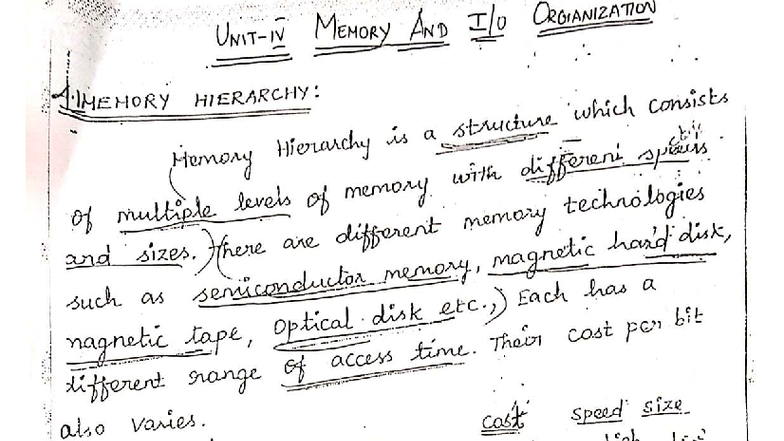 UNIT-IV MEMORY AND I/O ORGIANIZATION
4.1 MEMORY HIERARCHY:
Memory Hierarchy is a structure which consists
of multiple levels of memory with different speeds
and sizes. There are different memory technologies
such as semiconductor memory, magnetic hard disk,
magnetic tape, optical disk etc.,) Each has a
different range of access time. Their cost per bit
also varies.
cost speed size